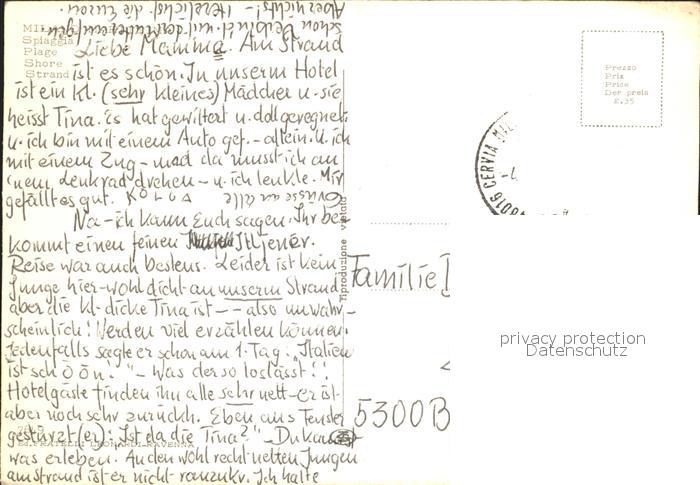 MIL
Spiaggia
Plage
Shore
Strand
Liebe Mamma. Am Strand
ist es schön. In unserm Hotel
ist ein kl. (sehr kleines) Mädchen u. sie
heisst Tina. Es hat gewittert u. doll geregnet
u. ich bin mit einem Auto gef. - allein. U. ich
mit einem Zug - und da musst ich an
'nem Lenkrad drehen - u. ich lenkte. Mir
gefällt es gut. Grüsse an alle
Na - ich kann Euch sagen. Ihr be-
kommt einen feinen Itljener.
Reise war auch bestens. Leider ist kein
Junge hier - wohl dicht an unserm Strand
aber die kl. dicke Tina ist - - also unwahr-
scheinlich! Werden viel erzählen können.
Jedenfalls sagte er schon am 1. Tag: "Italien
ist schöön!" - Was der so loslässt!!
Hotelgäste finden ihn alle sehr nett - er ist
aber noch sehr zurückh. Eben aus Fenster
gestürzt (er): "Ist da die Tina?" - Du kannst
was erleben. An den wohl recht netten Jungen
am Strand ist er nicht ranzukr. Ich halte
schon Verbindel. und der Mutter
Aber nichts! - Herzlichst die Euren.
FRATELLI LEONARDI - RAVENNA
riproduzione vietata
Prezzo
Prix
Price
Der preis
£.35
CERVIA MIL
Familie
5300 B
privacy protection
Datenschutz